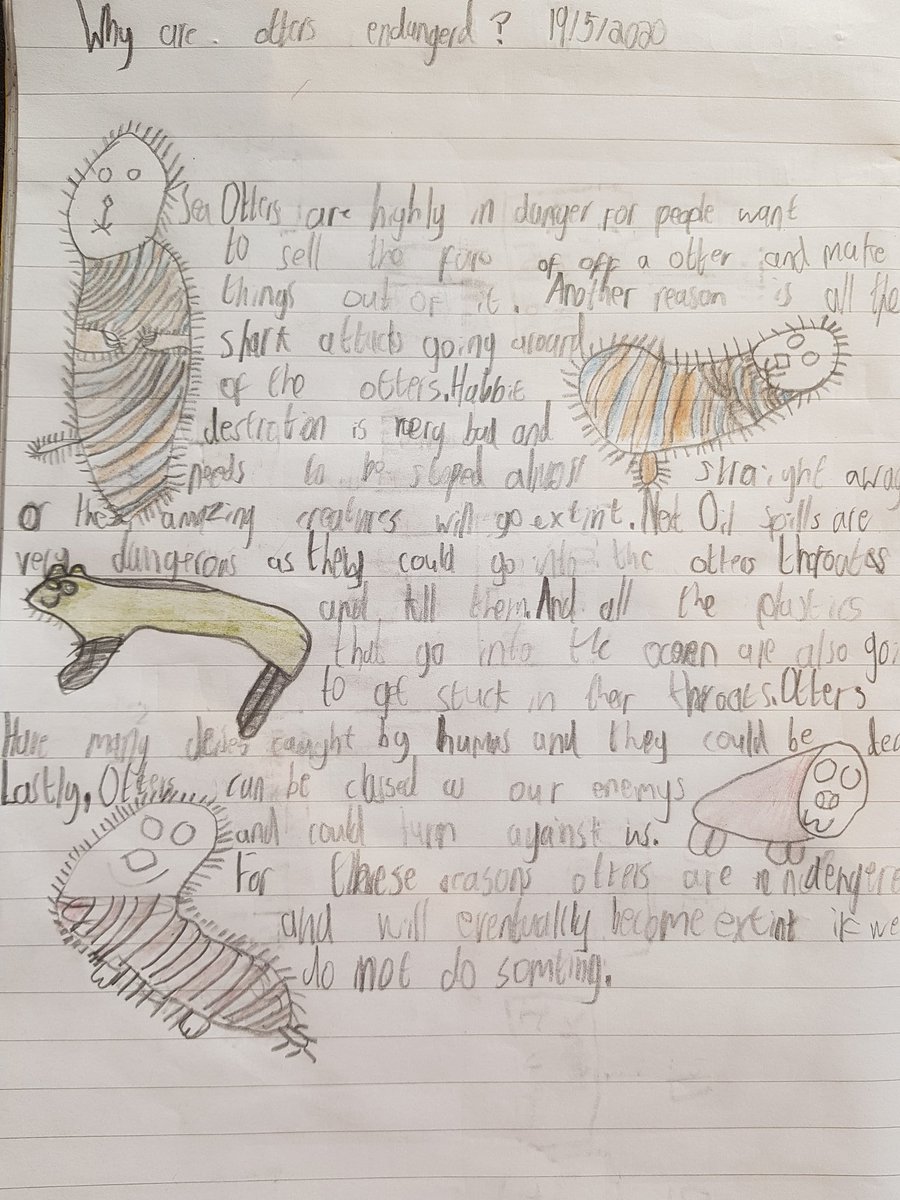 Why are otters endangerd? 19/5/2020
Sea Otters are highly in danger for people want
to sell the furs of off a otter and make
things out of it. Another reason is all the
shark attacks going around
of the otters. Habbit
destrction is very bad and
needs to be stoped almost straight away
or these amazing creatures will go extint. Next Oil spills are
very dangerous as they could go into the otters throats
and kill them. And all the plastics
that go into the ocean are also goi
to get stuck in ther throats. Otters
Have many caught by humas and they could be dea
Lastly, Otters can be classed as our enemys
and could turn against us.
For these reasons otters are endengere
and will eventually become extint if we
do not do somting.